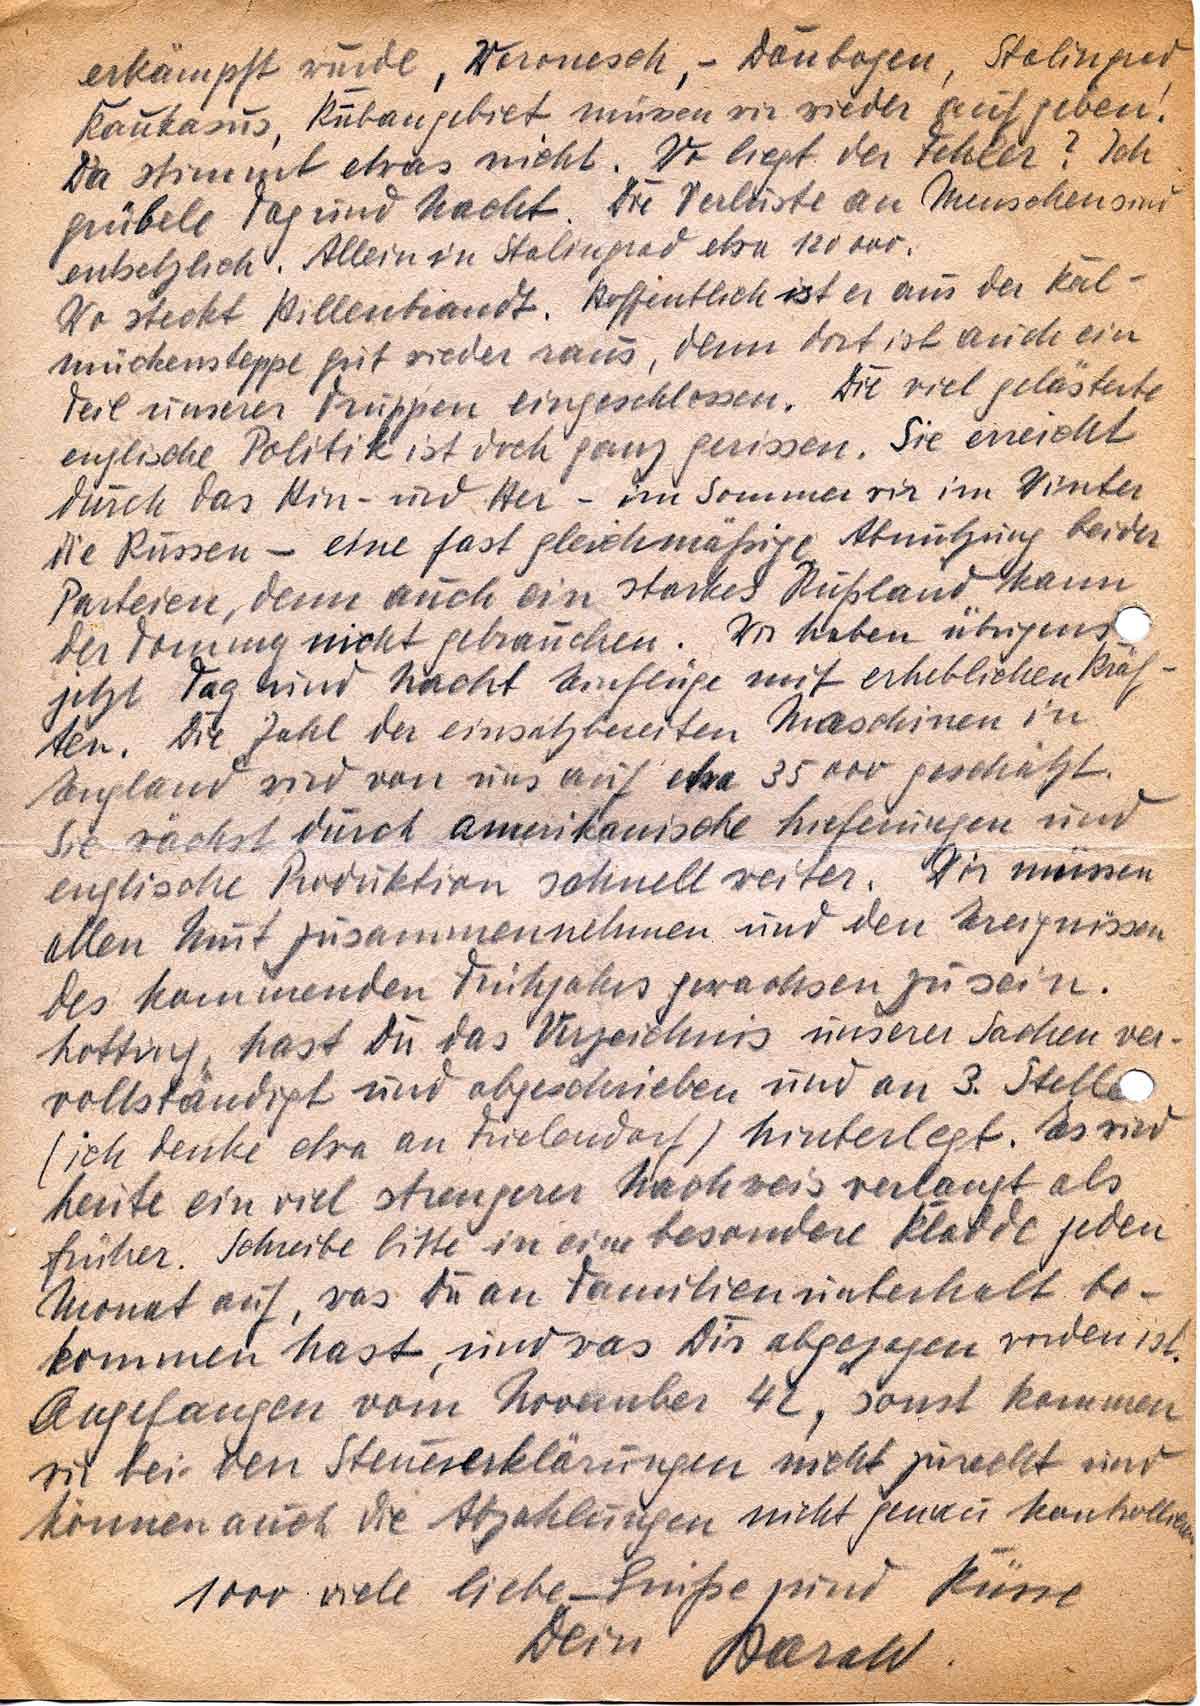 erkämpft wurde, Woronesch, - Donbogen, Stalingrad
Kaukasus, Kubangebiet müssen wir wieder aufgeben!
Da stimmt etwas nicht. Wo liegt der Fehler? Ich
grübele Tag und Nacht. Die Verluste an Menschen sind
entsetzlich. Allein in Stalingrad etwa 120 000.
Wo steckt Hillenbrandt. Hoffentlich ist er aus der Kal-
mückensteppe gut wieder raus, denn dort ist auch ein
Teil unserer Truppen eingeschlossen. Die viel gelästerte
englische Politik ist doch ganz gerissen. Sie erreicht
durch das Hin- und Her - im Sommer wir im Winter
die Russen - eine fast gleichmäßige Abnutzung beider
Parteien, denn auch ein starkes Rußland kann
der Tommy nicht gebrauchen. Wir haben übrigens
jetzt Tag und Nacht Einflüge mit erheblichen Kräf-
ten. Die Zahl der einsatzbereiten Maschinen in
England wird von uns auf etwa 35 000 geschätzt.
Sie wächst durch amerikanische Lieferungen und
englische Produktion schnell weiter. Wir müssen
allen Mut zusammennehmen und den Ereignissen
des kommenden Frühjahrs gewachsen zu sein.
hast Du das Verzeichnis unserer Sachen ver-
vollständigt und abgeschrieben und an 3. Stelle
(ich denke etwa an Frielendorf) hinterlegt. Es wird
heute ein viel strengerer Nachweis verlangt als
früher. Schreibe bitte in eine besondere Kladde jeden
Monat auf, was Du an Familienunterhalt be-
kommen hast, und was Dir abgezogen worden ist.
Angefangen vom November 42, sonst kommen
wir bei den Steuererklärungen nicht zurecht und
können auch die Abzahlungen nicht genau kontrollieren.
1000 viele liebe Grüße und Küsse
Dein Harald.